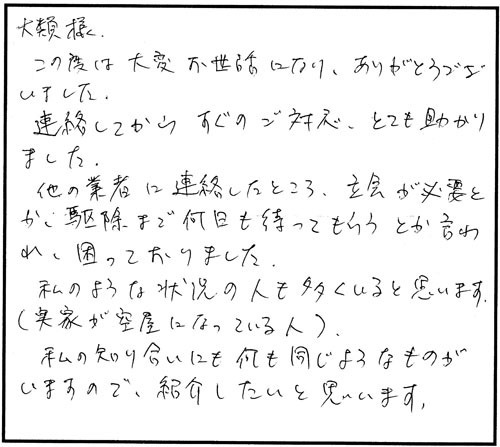 大類様.
この度は大変お世話になり、ありがとうござ
いました.
連絡してから すぐのご対応、とても助かり
ました.
他の業者に連絡したところ、立会が必要と
か、駆除まで何日も待ってもらう とか言わ
れ、困っておりました.
私のような状況の人も多くいると思います.
(実家が空屋になっている人).
私の知り合いにも何も同じようなものが
いますので、紹介したいと思います.